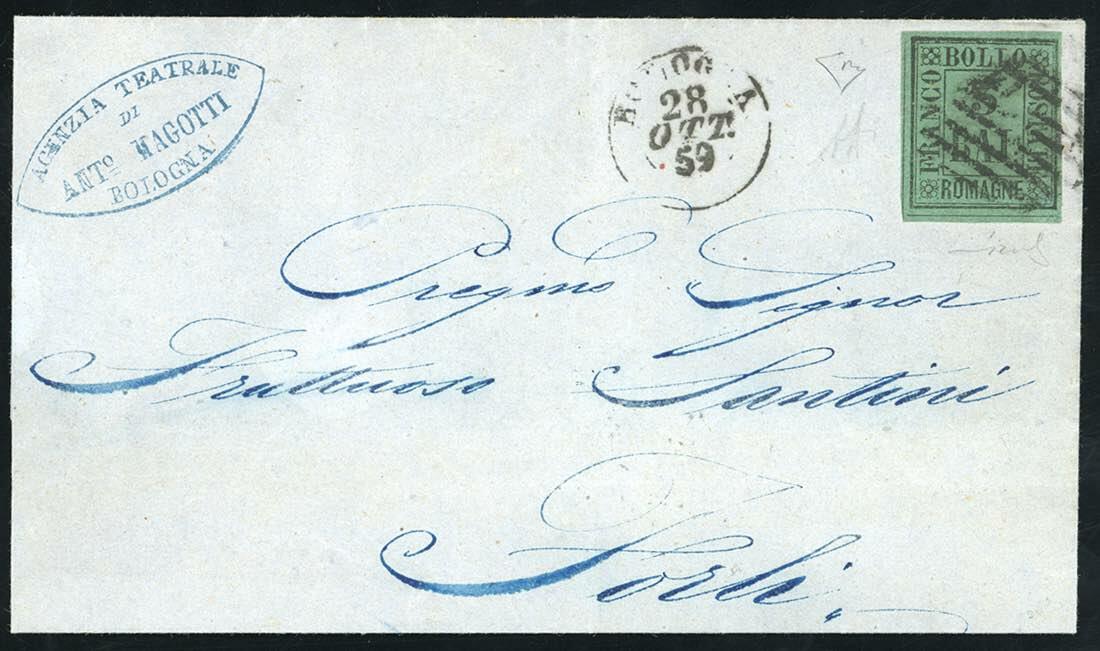 AGENZIA TEATRALE
DI
ANTO MAGOTTI
BOLOGNA
BOLOGNA
28
OTT.
59
BOLLO
FRANCO
BAI
POSTALE
ROMAGNE
Pregmo Signor
Fruttuoso Santini
Forlì